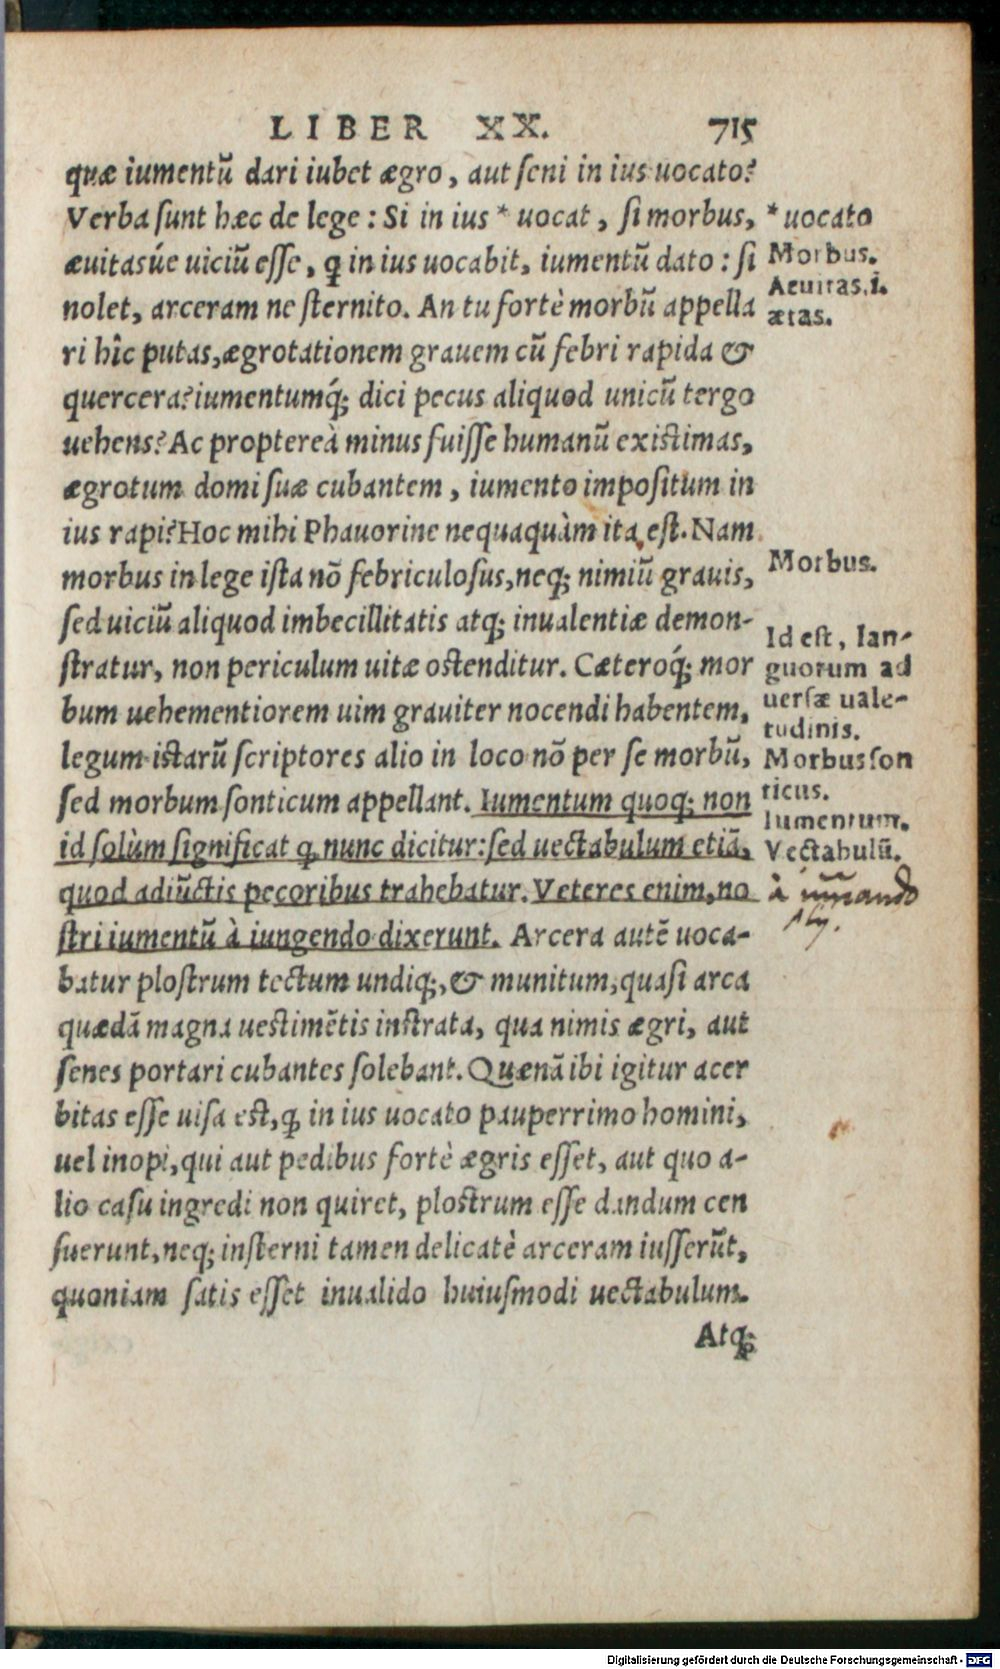 LIBER XX. 715
quæ iumentũ dari iubet ægro, aut seni in ius uocato?
Verba sunt hæc de lege: Si in ius * uocat, si morbus,
æuitasúe uiciũ esse, ꝗ in ius uocabit, iumentũ dato: si
nolet, arceram ne sternito. An tu fortè morbũ appella
ri hîc putas, ægrotationem grauem cũ febri rapida &
quercera? iumentumq́; dici pecus aliquod unicũ tergo
uehens? Ac proptereà minus fuisse humanũ existimas,
ægrotum domi suæ cubantem, iumento impositum in
ius rapi? Hoc mihi Phauorine nequaquàm ita est. Nam
morbus in lege ista nõ febriculosus, neq; nimiũ grauis,
sed uiciũ aliquod imbecillitatis atq; inualentiæ demon-
stratur, non periculum uitæ ostenditur. Cæteroq́; mor
bum uehementiorem uim grauiter nocendi habentem,
legum istarũ scriptores alio in loco nõ per se morbũ,
sed morbum sonticum appellant. Iumentum quoq; non
id solùm significat ꝗ nunc dicitur: sed uectabulum etiã,
quod adiũctis pecoribus trahebatur. Veteres enim, no
stri iumentũ à iungendo dixerunt. Arcera autẽ uoca-
batur plostrum tectum undiq;, & munitum, quasi arca
quædã magna uestimẽtis instrata, qua nimis ægri, aut
senes portari cubantes solebant. Quænã ibi igitur acer
bitas esse uisa est, ꝗ in ius uocato pauperrimo homini,
uel inopi, qui aut pedibus fortè ægris esset, aut quo a-
lio casu ingredi non quiret, plostrum esse dandum cen
suerunt, neq; insterni tamen delicatè arceram iusserũt,
quoniam satis esset inualido huiusmodi uectabulum.
Atq;
* uocato
Morbus.
Aeuitas.i.
ætas.
Morbus.
Id est, lan-
guorum ad
uersæ uale-
tudinis.
Morbus son
ticus.
Iumentum.
Vectabulũ.
à
Digitalisierung gefördert durch die Deutsche Forschungsgemeinschaft - DFG